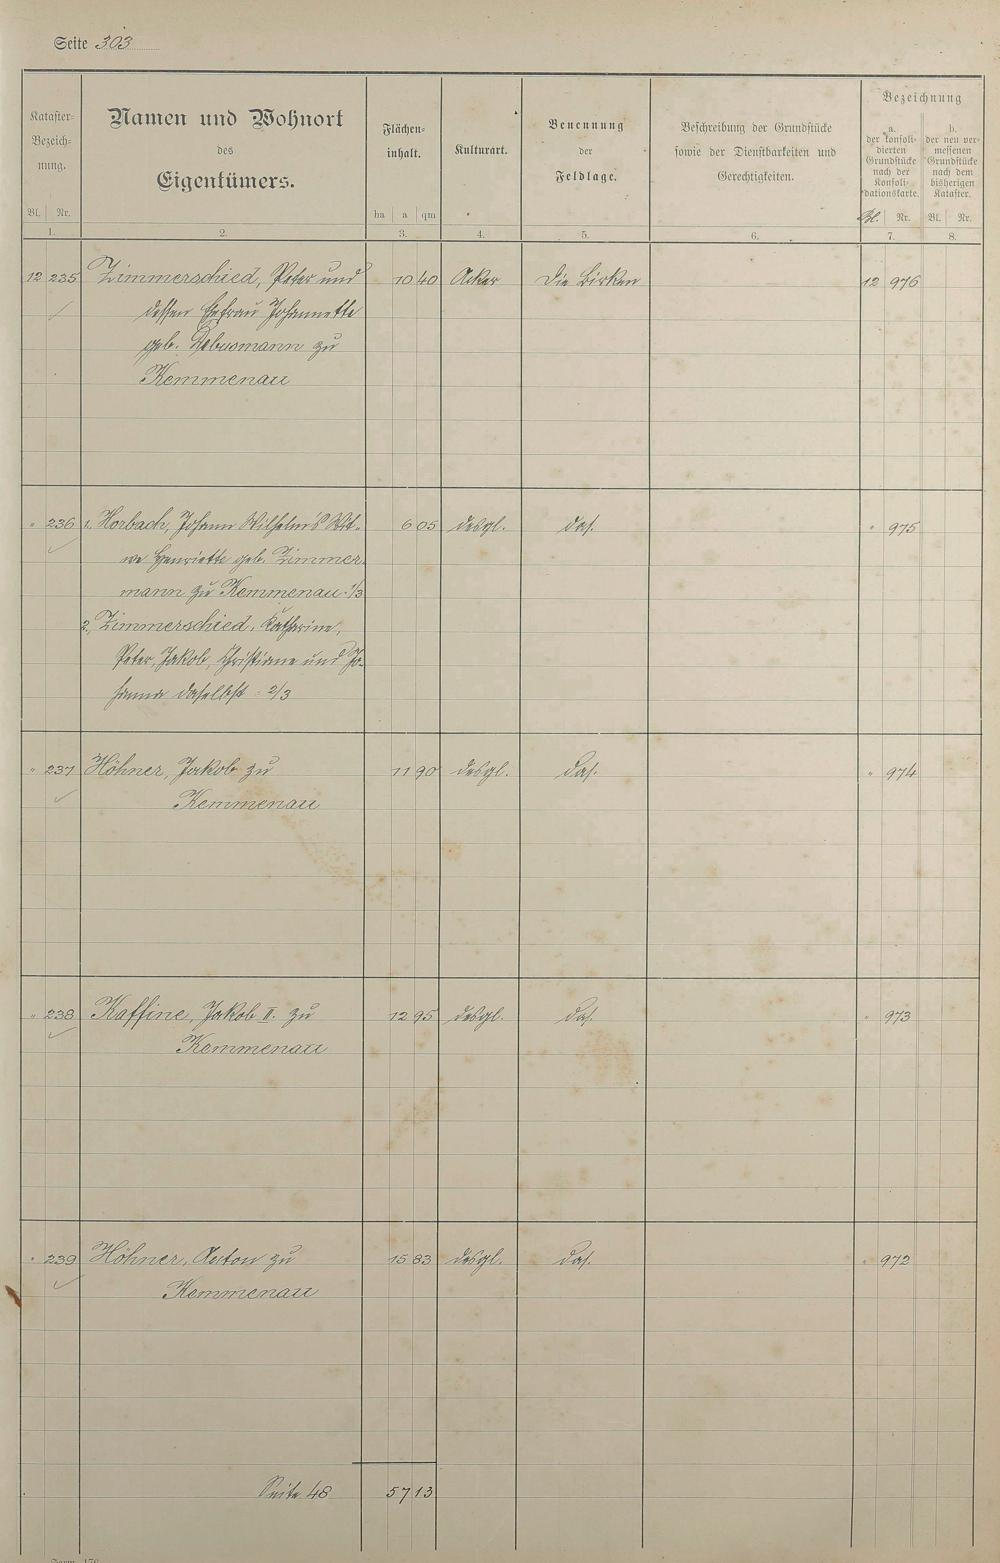 Seite 303
Kataster-
Bezeich-
nung.
Bl. Nr.
1.
Namen und Wohnort
des
Eigentümers.
2.
Flächen-
inhalt.
ha a qm
3.
Kulturart.
4.
Benennung
der
Feldlage.
5.
Beschreibung der Grundstücke
sowie der Dienstbarkeiten und
Gerechtigkeiten.
6.
Bezeichnung
a.
der konsoli-
dierten
Grundstücke
nach der
Konsoli-
dationskarte.
Bl. Nr.
7.
b.
der neu ver-
messenen
Grundstücke
nach dem
bisherigen
Kataster.
Bl. Nr.
8.
12 235 Zimmerschied, Peter und 10 40 Acker Die Birken 12 976
dessen Ehefrau Johannette
geb. Debusmann zu
Kemmenau
" 236 1. Horbach, Johann Wilhelm's Wit- 6 05 desgl. das. " 975
we Henriette geb. Zimmer-
mann zu Kemmenau 1/3
2. Zimmerschied, Katharine,
Peter, Jakob, Christiane und Jo-
hanna daselbst = 2/3
" 237 Höhner, Jakob zu 11 90 desgl. das. " 974
Kemmenau
" 238 Kaffine, Jakob II. zu 12 95 desgl. das. " 973
Kemmenau
" 239 Höhner, Anton zu 15 83 desgl. das. " 972
Kemmenau
Seite 48 57 13